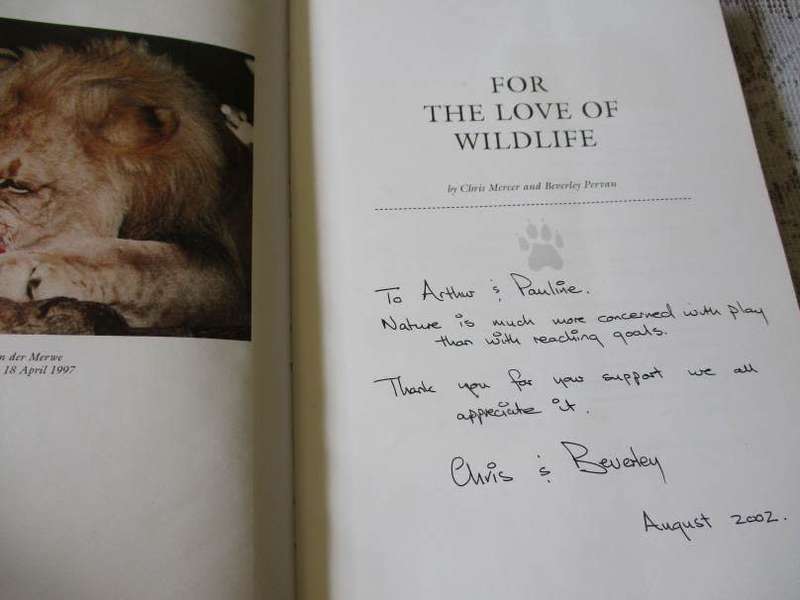 n der Merwe
18 April 1997
FOR
THE LOVE OF
WILDLIFE
by Chris Mercer and Beverley Pervan
To Arthur & Pauline.
Nature is much more concerned with play
than with reaching goals.
Thank you for your support we all
appreciate it.
Chris & Beverley
August 2002.